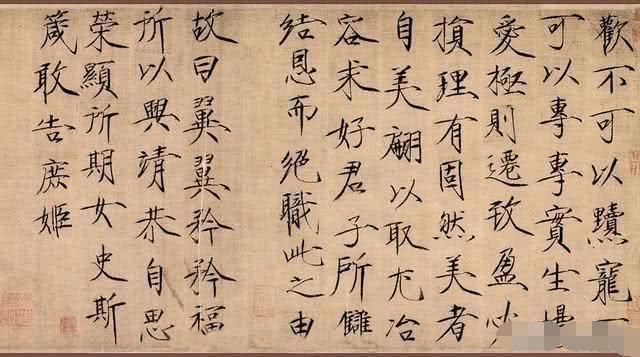 歡不可以黷寵
可以專專實生慢
愛極則遷致盈必
損理有固然美者
自美翩以取尤冶
容求好君子所讎
結恩而絕職此之由
故曰翼翼矜矜福
所以興靖恭自思
榮顯所期女史斯
箴敢告庶姬